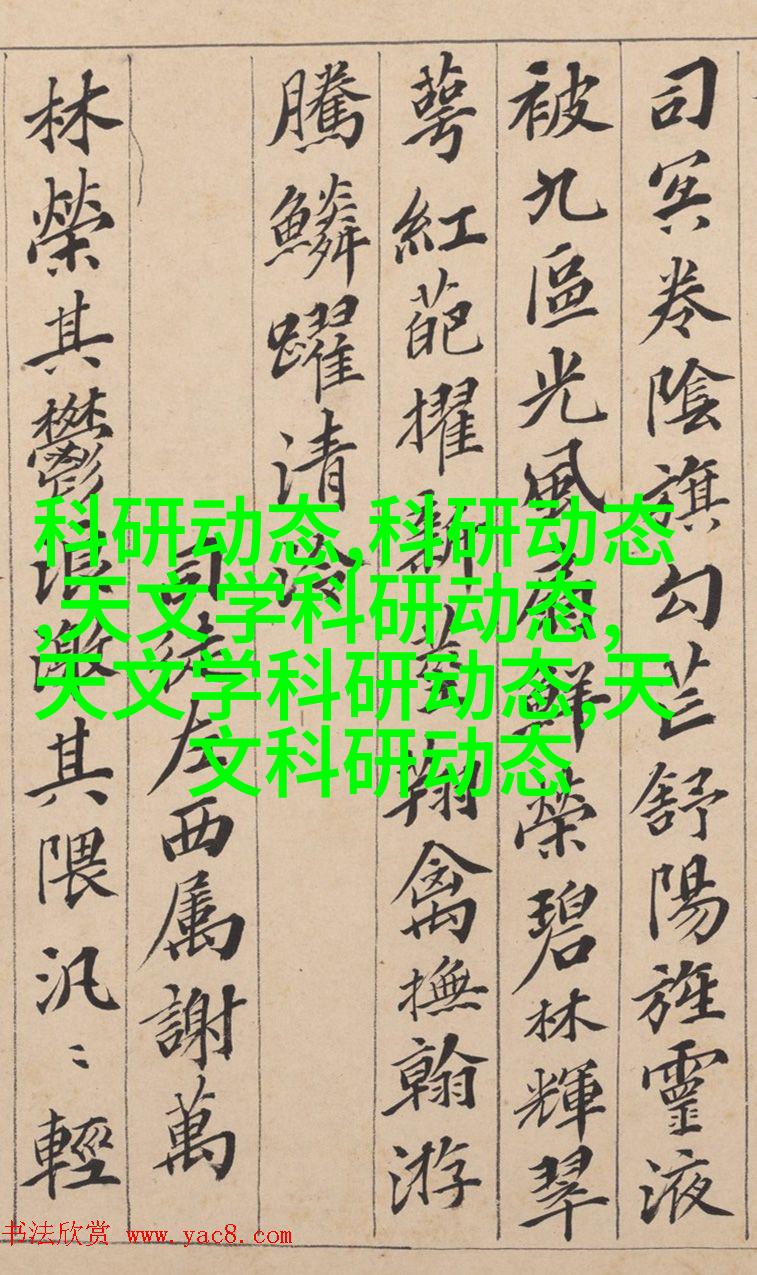 司冥卷陰旗勾芒舒陽旌靈液
被九區光風鮮榮碧林輝翠
萼紅葩擢新莖翔禽撫翰游
騰鱗躍清泠
司徒左西属謝萬
林榮其鬱浪激其隈汎〻輕
科研动态,科研动态
,天文学科研动态,
天文学科研动态,天
文科研动态
书法欣赏 www.yac8.com